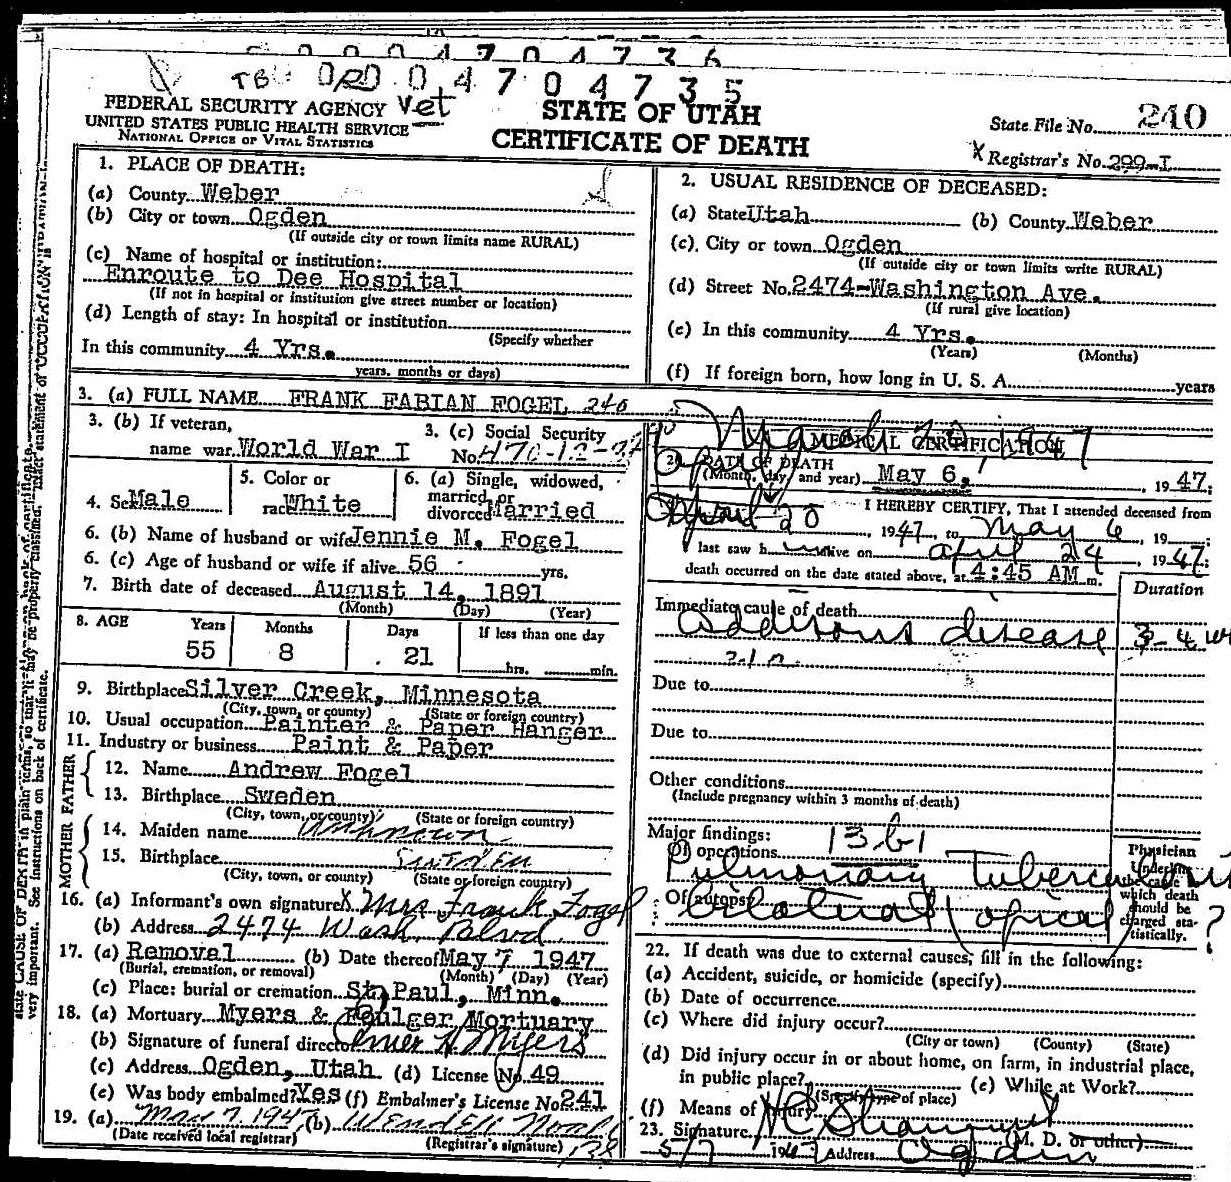 0 0 0 4 7 0 4 7 3 6
TB 0 0 0 4 7 0 4 7 3 5
FEDERAL SECURITY AGENCY Vet
UNITED STATES PUBLIC HEALTH SERVICE
NATIONAL OFFICE OF VITAL STATISTICS
STATE OF UTAH
CERTIFICATE OF DEATH
State File No. 240
X Registrar's No. 299-I
1. PLACE OF DEATH:
(a) County Weber
(b) City or town Ogden
(If outside city or town limits name RURAL)
(c) Name of hospital or institution:
Enroute to Dee Hospital
(If not in hospital or institution give street number or location)
(d) Length of stay: In hospital or institution
(Specify whether
In this community 4 Yrs.
years, months or days)
2. USUAL RESIDENCE OF DECEASED:
(a) State Utah (b) County Weber
(c) City or town Ogden
(If outside city or town limits write RURAL)
(d) Street No. 2474-Washington Ave.
(If rural give location)
(e) In this community 4 Yrs.
(Years) (Months)
(f) If foreign born, how long in U. S. A. years
3. (a) FULL NAME FRANK FABIAN FOGEL 240
3. (b) If veteran,
name war World War I
3. (c) Social Security
No. 470-12-
4. Sex Male
5. Color or
race White
6. (a) Single, widowed,
married, or
divorced Married
6. (b) Name of husband or wife Jennie M. Fogel
6. (c) Age of husband or wife if alive 56 yrs.
7. Birth date of deceased August 14, 1891
(Month) (Day) (Year)
8. AGE Years Months Days If less than one day
55 8 21 hrs. min.
9. Birthplace Silver Creek, Minnesota
(City, town, or county) (State or foreign country)
10. Usual occupation Painter & Paper Hanger
11. Industry or business Paint & Paper
FATHER
12. Name Andrew Fogel
13. Birthplace Sweden
(City, town, or county) (State or foreign country)
MOTHER
14. Maiden name Unknown
15. Birthplace Sweden
(City, town, or county) (State or foreign country)
16. (a) Informant's own signature X Mrs Frank Fogel
(b) Address 2474 Wash. Blvd
17. (a) Removal (b) Date thereof May 7 1947
(Burial, cremation, or removal) (Month) (Day) (Year)
(c) Place: burial or cremation St. Paul, Minn.
18. (a) Mortuary Myers & Foulger Mortuary
(b) Signature of funeral director Elmer A Myers
(c) Address Ogden, Utah. (d) License No. 49
(e) Was body embalmed? Yes (f) Embalmer's License No. 241
19. (a) May 7, 1947 (b) Wendell
(Date received local registrar) (Registrar's signature)
MEDICAL CERTIFICATION
20. DATE OF DEATH
(Month, day, and year) May 6, 1947
I HEREBY CERTIFY, That I attended deceased from
April 20 1947, to May 6, 19
I last saw h alive on April 24, 1947;
death occurred on the date stated above, at 4:45 AM m.
Duration
Immediate cause of death
Addisons disease 3-4
Due to
Due to
Other conditions
(Include pregnancy within 3 months of death)
Major findings:
Of operations 13.b1
Pulmonary Tuberculosis
Of autopsy bilateral (apical) ?
Physician
Underline
the cause to
which death
should be
charged sta-
tistically.
22. If death was due to external causes, fill in the following:
(a) Accident, suicide, or homicide (specify)
(b) Date of occurrence
(c) Where did injury occur?
(City or town) (County) (State)
(d) Did injury occur in or about home, on farm, in industrial place,
in public place? (e) While at Work?
(Specify type of place)
(f) Means of injury
23. Signature (M. D. or other)
5/7 1947 Address Ogden